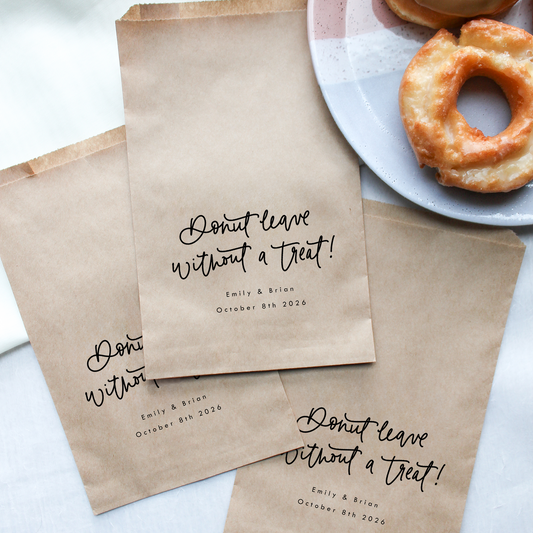 Donut leave
without a treat!
Emily & Brian
October 8th 2026
Donu
withou
Emily & Brian
October 8th 2026
Donut leave
without a treat!
Emily & Brian
October 8th 2026